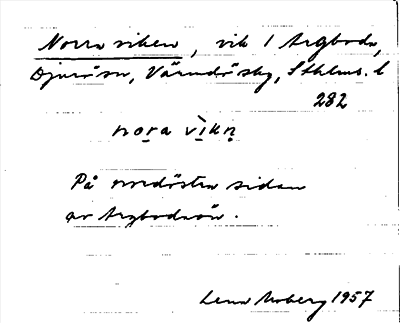 Norra viken, vik i Aegboda,
Djurö sn, Värmdö skg, Sthlms. l
282
nọra vìkṇ
På nordöstra sidan
av Aegbodaön.
Lena Moberg 1957